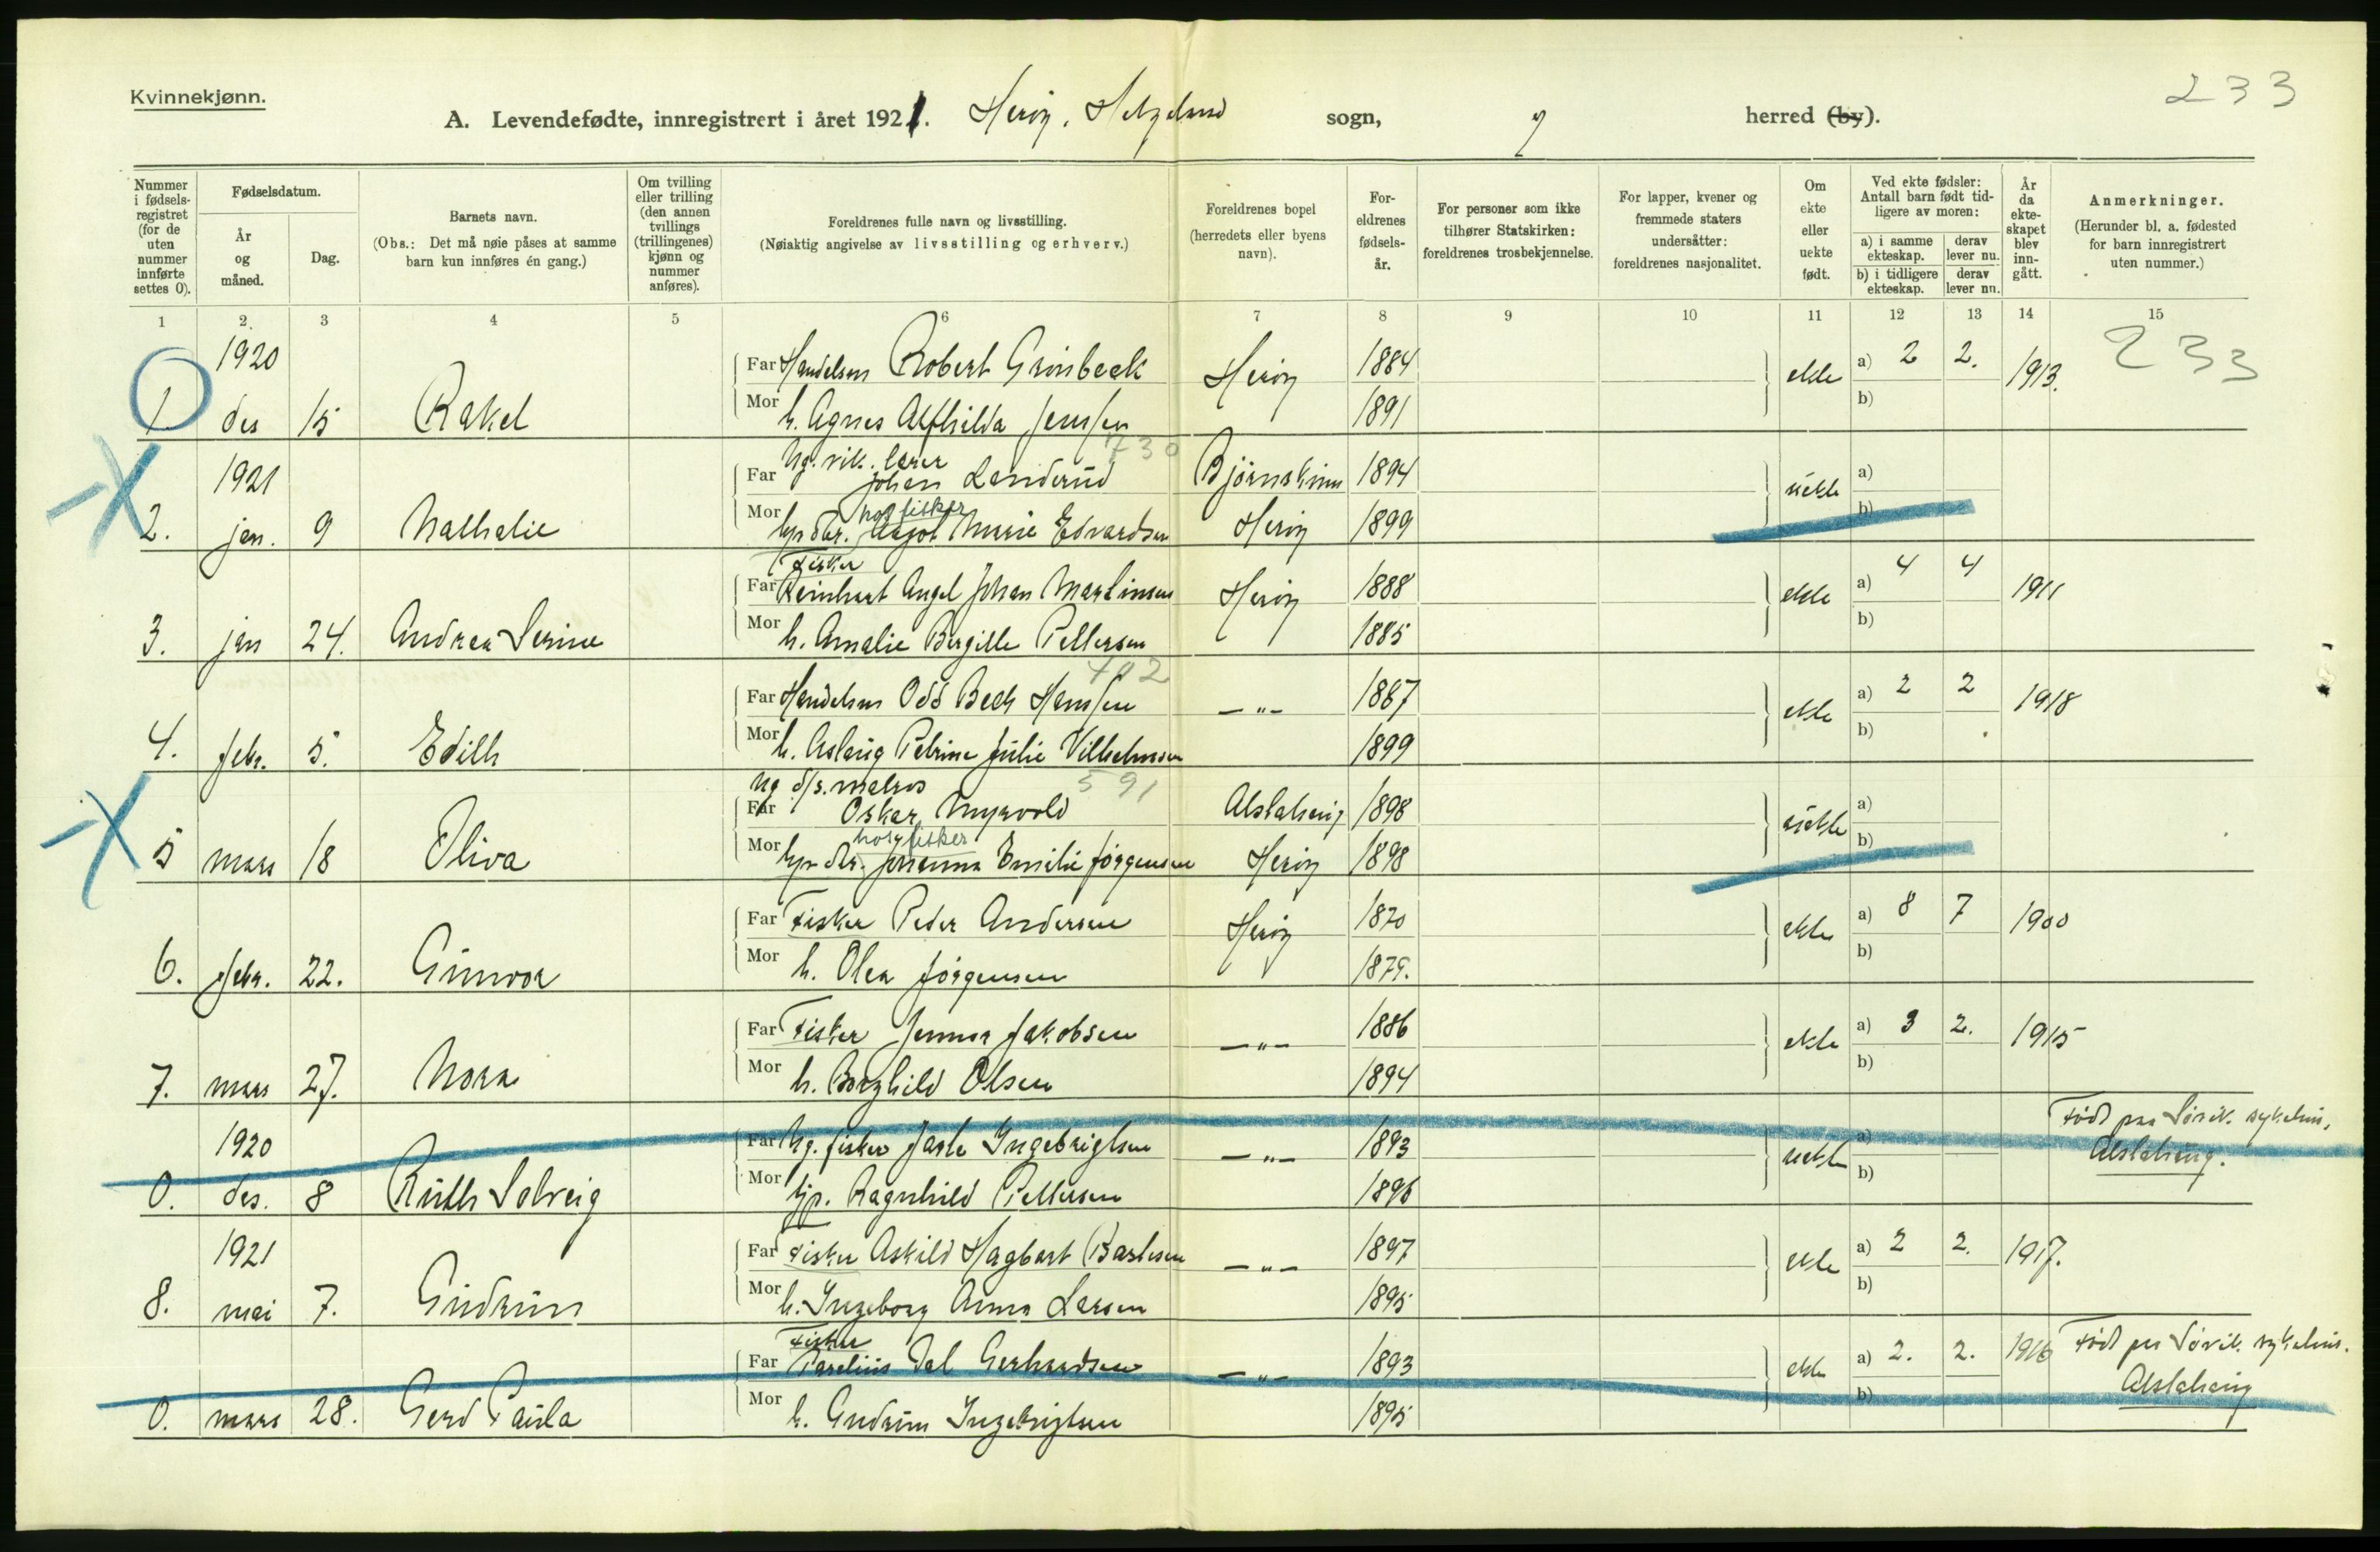 Kvinnekjønn.
233
A. Levendefødte, innregistrert i året 1921. Herøy, Helgeland sogn, herred (by).
Nummer i fødselsregistret (for de uten nummer innførte settes 0).
Fødselsdatum.
År og måned.
Dag.
Barnets navn.
(Obs.: Det må nøie påses at samme barn kun innføres én gang.)
Om tvilling eller trilling (den annen tvillings (trillingenes) kjønn og nummer anføres).
Foreldrenes fulle navn og livsstilling.
(Nøiaktig angivelse av livsstilling og erhverv.)
Foreldrenes bopel (herredets eller byens navn).
For-eldrenes fødsels-år.
For personer som ikke tilhører Statskirken: foreldrenes trosbekjennelse.
For lapper, kvener og fremmede staters undersåtter: foreldrenes nasjonalitet.
Om ekte eller uekte født.
Ved ekte fødsler: Antall barn født tidligere av moren:
a) i samme ekteskap. derav lever nu.
b) i tidligere ekteskap. derav lever nu.
År da ekteskapet blev inngått.
Anmerkninger.
(Herunder bl. a. fødested for barn innregistrert uten nummer.)
1 2 3 4 5 6 7 8 9 10 11 12 13 14 15
1920
Far Handelsm Robert Grönbeck Herøy 1884 ekte a) 2 2. 1913. 233
1 des 15 Rakel Mor h. Agnes Alfhilda Jenssen 1891 b)
730
1921
Ug. vik. lærer
Far Johan Landerud Björnskinn 1894 uekte a)
hos fisker
2. jan. 9 Nathalie Mor Marie Edvardsen Herøy 1899 b)
Fisker
Far Reinhart Angel Johan Martinsen Herøy 1888 ekte a) 4 4 1911
3. jan 24. Andrea Serine Mor h. Amalie Bergitte Pettersen 1885 b)
402
Far Handelsm Odd Bech Hanssen —"— 1887 ekte a) 2 2 1918
4. febr. 5. Edith Mor h. Aslaug Petrine Julie Vilhelmsen 1899 b)
591
Ug d/s. matros
Far Oskar Myrvold Alstahaug 1898 uekte a)
hos fisker
5 mars 18 Oliva Mor Johanna Emilie Jörgensen Herøy 1898 b)
Far Fisker Peder Andersen Herøy 1870 ekte a) 8 7 1900
6. febr. 22. Gunvor Mor h. Olea Jörgensen 1879. b)
Far Fisker Jakobsen —"— 1886 ekte a) 3 2. 1915
7. mars 27. Nora Mor h. Borghild Olsen 1894 b)
1920
Far Ug. fisker Jarle Ingebrigtsen —"— 1893 uekte a) Född paa Sövik. sykehus, Alstahaug.
0. des. 8 Ruth Solveig Mor tjp. Ragnhild Pettersen 1896 b)
1921
Far Fisker Askild Hagbart Bastesen —"— 1897 ekte a) 2 2. 1917.
8. mai 7. Gudrun Mor h. Ingeborg Anna Larsen 1895 b)
Fisker
Far Parelius Dal Gerhardsen —"— 1893 ekte a) 2. 2. 1916 Född paa Sövik. sykehus. Alstahaug
0. mars 28. Gerd Paula Mor h. Gudrun Ingebrigtsen 1895 b)